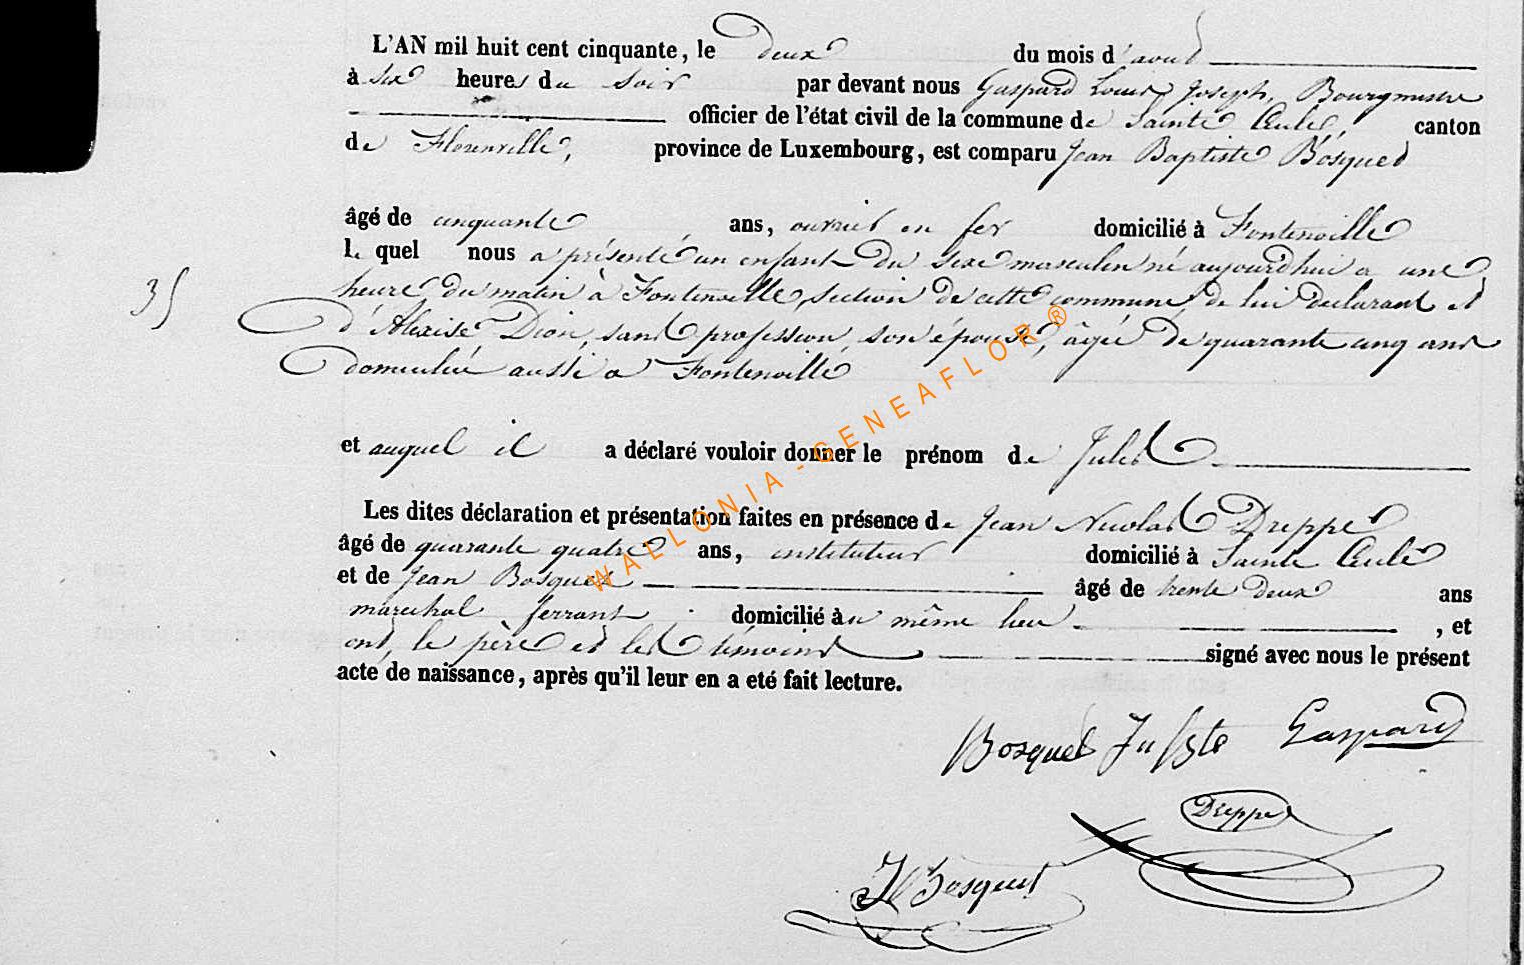 L'AN mil huit cent cinquante, le deux du mois d'aout
à six heures du soir par devant nous Gaspard Louis Joseph, Bourgmestre
officier de l'état civil de la commune de Sainte Cécile, canton
de Florenville, province de Luxembourg, est comparu Jean Baptiste Bosquet
âgé de cinquante ans, ouvrier en fer domicilié à Fontenoille
le quel nous a présenté un enfant du sexe masculin né aujourd'hui a une
35
heure du matin à Fontenoille, section de cette commune, de lui déclarant et
d'Alexise Dion, sans profession, son épouse, âgée de quarante cinq ans
domiciliée aussi a Fontenoille
et auquel il a déclaré vouloir donner le prénom de Jules
Les dites déclaration et présentation faites en présence de Jean Nicolas Dreppe
âgé de quarante quatre ans, instituteur domicilié à Sainte Cécile
et de Jean Bosquet âgé de trente deux ans
marechal ferrant domicilié au même lieu , et
ont, le père et les témoins signé avec nous le présent
acte de naissance, après qu'il leur en a eté fait lecture.
Bosquet Gaspard
Dreppe
Bosquet
WALLONIA - GENEAFLOR ®